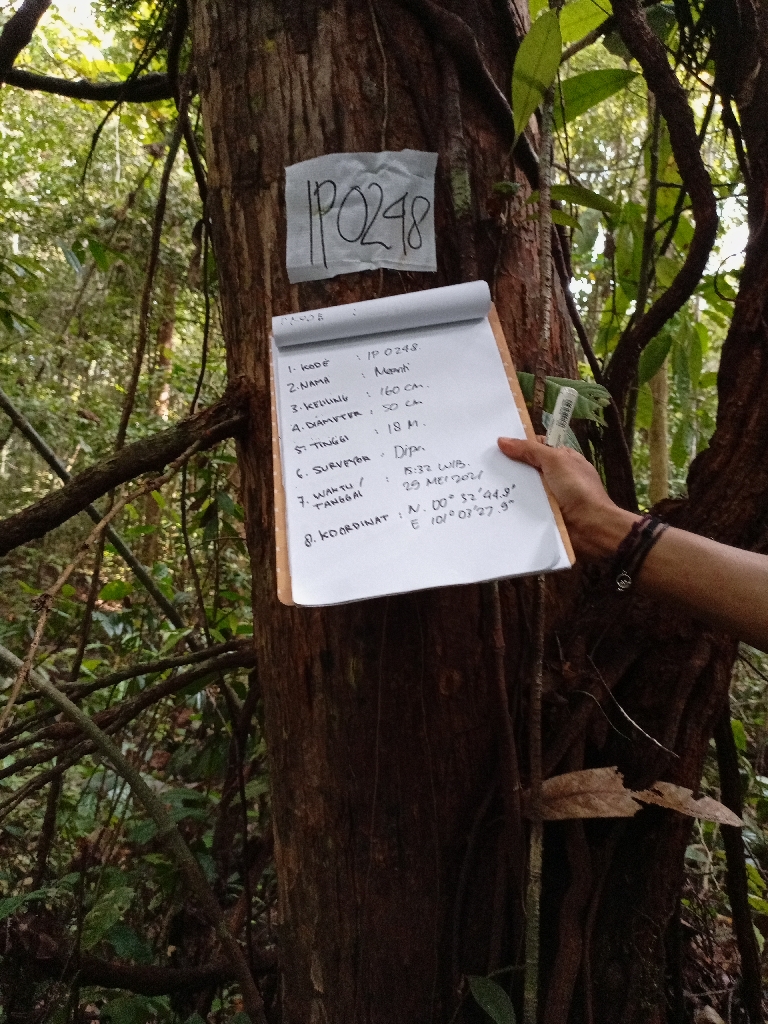 IP0248
1. KODE : IP 0248.
2. NAMA : Meranti
3. KELILING : 160 cm.
4. DIAMETER : 50 cm
5. TINGGI : 18 M.
6. SURVEYOR : Dipr.
7. WAKTU / TANGGAL : 15:32 WIB.
29 MEI 2021
8. KOORDINAT : N. 00° 32' 44.9"
E 101° 03' 27.9"